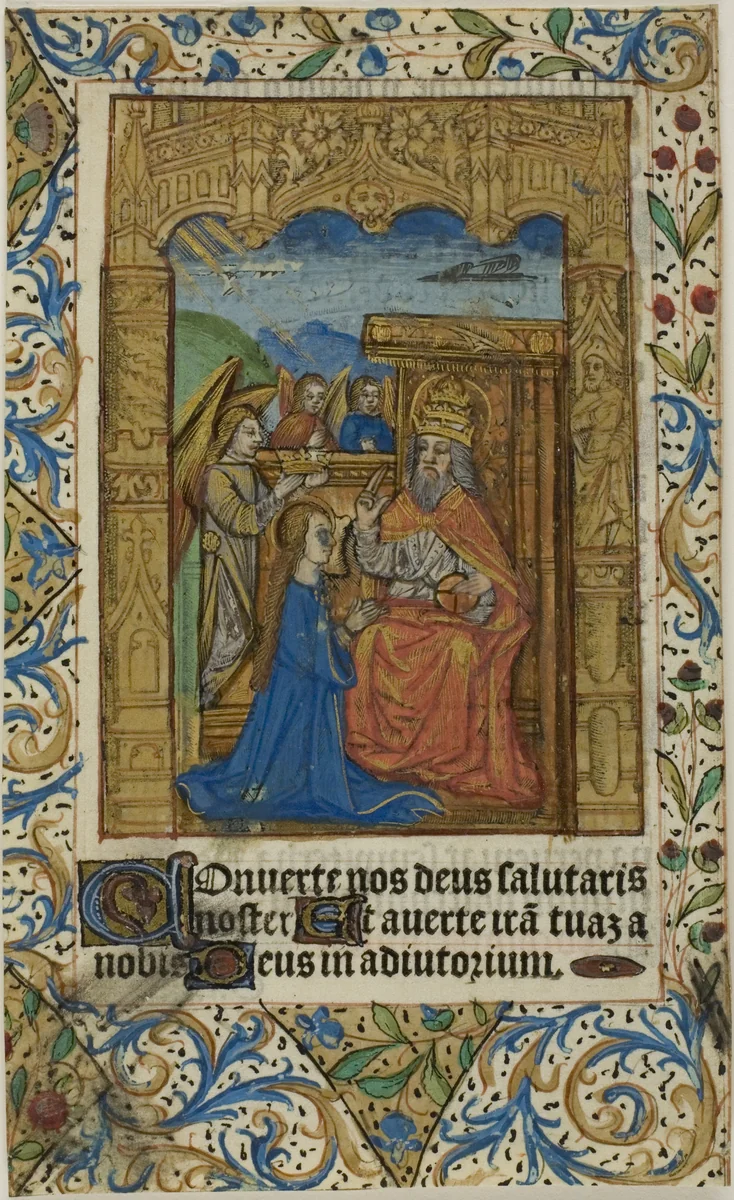 COnuerte nos deus salutaris
noster Et auerte irã tuaꝫ a
nobis Deus in adiutorium.